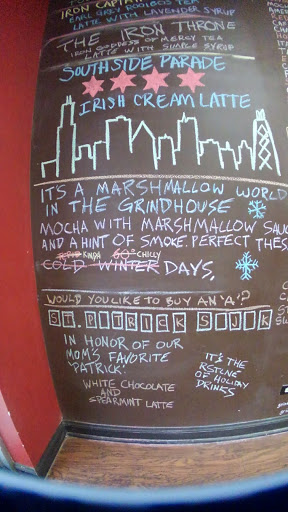 IRON CAPTAIN
EARL GREY ROOIBOS TEA
LATTE WITH LAVENDER SYRUP
THE IRON THRONE
IRON GODDESS OF MERCY TEA
LATTE WITH SIMPLE SYRUP
SOUTHSIDE PARADE
IRISH CREAM LATTE
IT'S A MARSHMALLOW WORLD
IN THE GRINDHOUSE
MOCHA WITH MARSHMALLOW SAUC
AND A HINT OF SMOKE. PERFECT THES
KINDA 60° CHILLY
COLD WINTER DAYS.
WOULD YOU LIKE TO BUY AN 'A'?
ST. PATRICK S
IN HONOR OF OUR
MOM'S FAVORITE
'PATRICK'.
WHITE CHOCOLATE
AND
SPEARMINT LATTE
IT'S THE
OF HOLIDAY
DRINKS